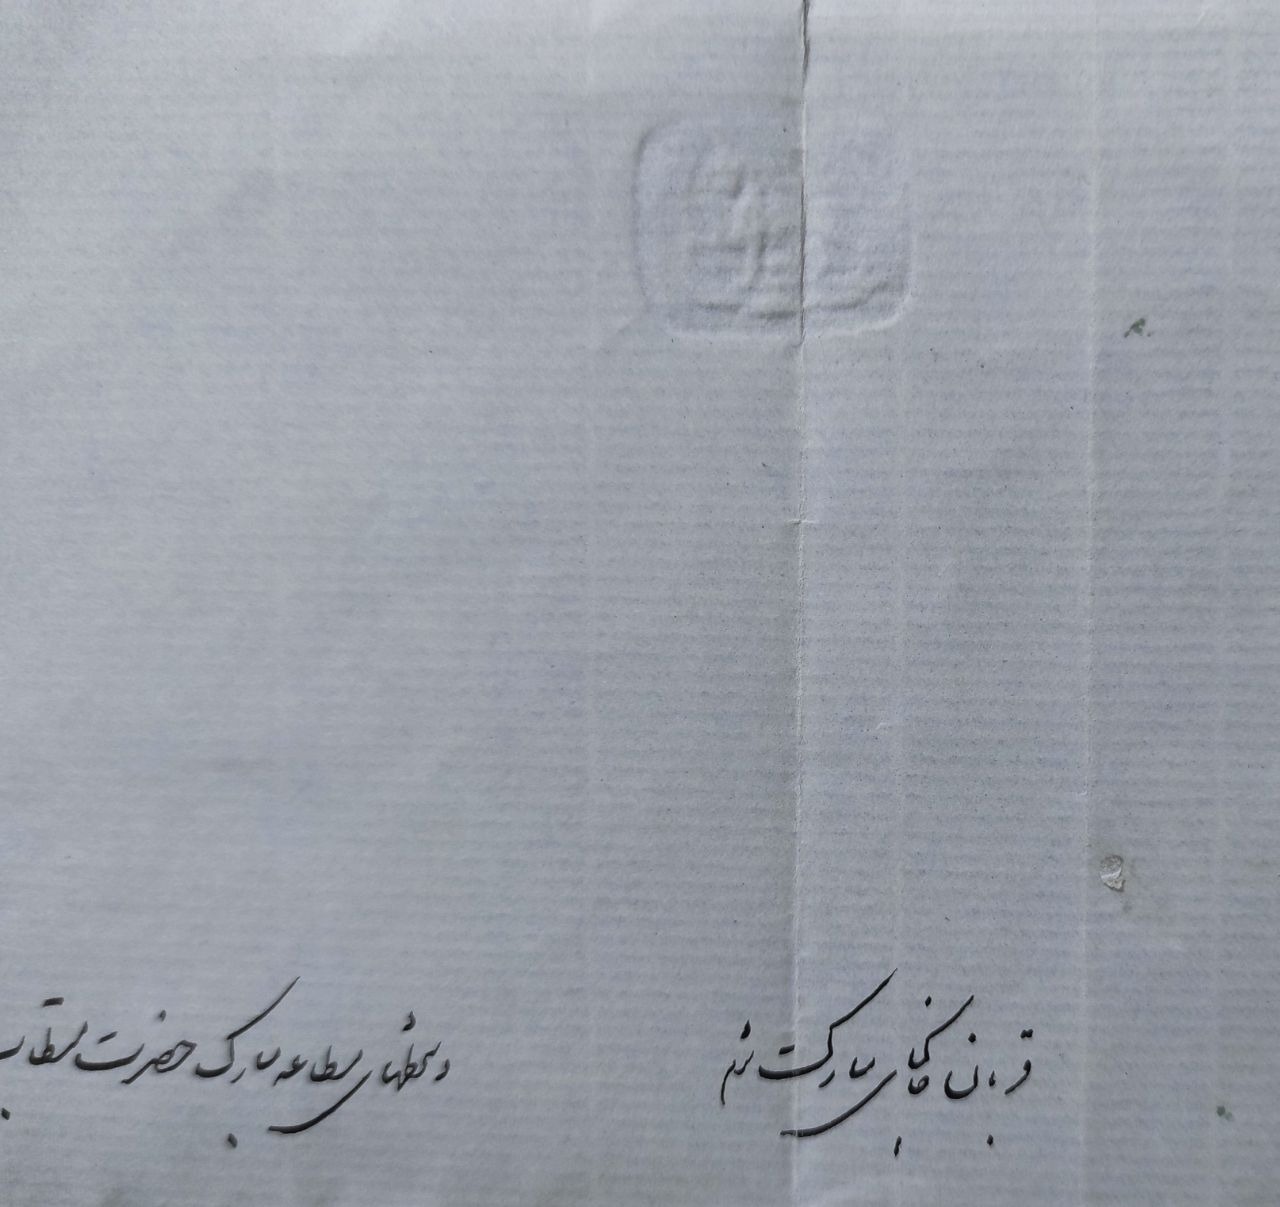 قربان خاکپای مبارکت شوم دستخطهای مطاعه مبارک حضرت مستطاب